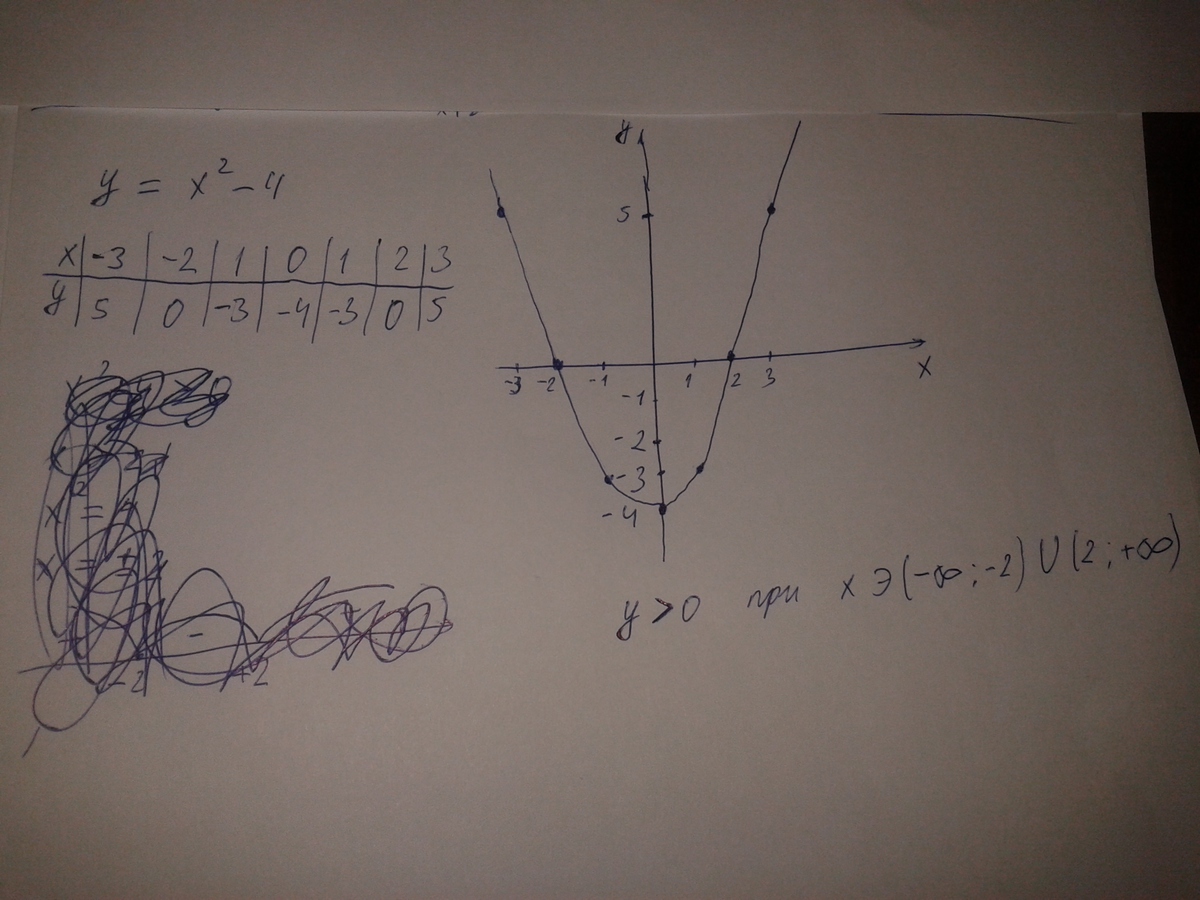 y = x² - 4
x | -3 | -2 | 1 | 0 | 1 | 2 | 3
y | 5 | 0 | -3 | -4 | -3 | 0 | 5
y
5
-3 -2 -1 1 2 3 x
-1
-2
-3
-4
y > 0 при x Э (-∞; -2) U (2; +∞)